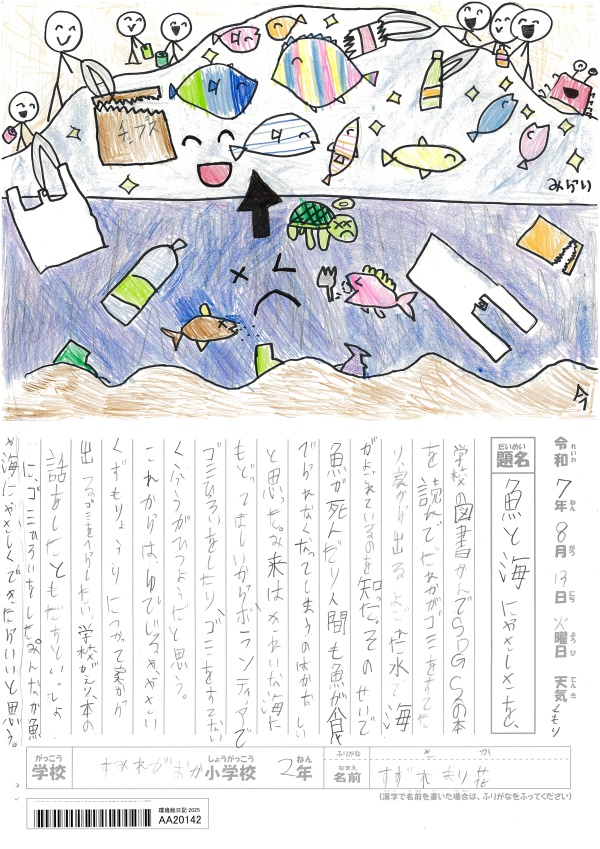 チップス
みらい
今
令和7年8月13日火曜日 天気くもり
題名 魚と海にやさしさを、
学校の図書かんでSDGSの本
を読んでだれかがゴミをすてた
り、家から出るよごれた水で海
がよごれているのを知った。そのせいで
魚が死んだり人間も魚が食
べられなくなってしまうのはかなしい
と思った。み来はきれいな海に
もどってほしいからボランティアで
ゴミひろいをしたり、ゴミをすてない
くふうがひつようだと思う。
これからは、ゆでじるややさい
くずもりょうりにつかって家から
出るゴミをへらしたい。学校がえり、本の
話をしたともだちといっしょ
に、ゴミひろいをした。みんなが魚
や海にやさしくできたらいいと思う。
学校 すみれがおか小学校 2年
名前 すずれもり花
(漢字で名前を書いた場合は、ふりがなをふってください)
環境絵日記2025
AA20142